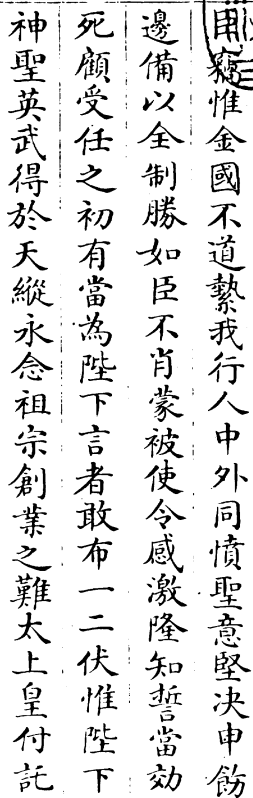 用竊惟金國不道縶我行人中外同憤聖意堅决申飭
邊備以全制勝如臣不肖蒙被使令感激隆知誓當効
死顧受任之初有當為陛下言者敢布一二伏惟陛下
神聖英武得於天縱永念祖宗創業之難太上皇付託